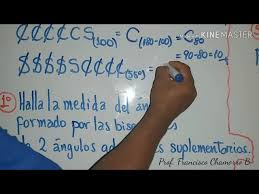 ₡₡₡₡CS(100) = C(180-100) = C80
KINEMASTER
= 90-80=10
$$$$S₡₡₡(360) =
1º Halla la medida del án
formado por las bise
de 2 ángulos ad suplementarios.
Prof. Francisco Chamorro B.